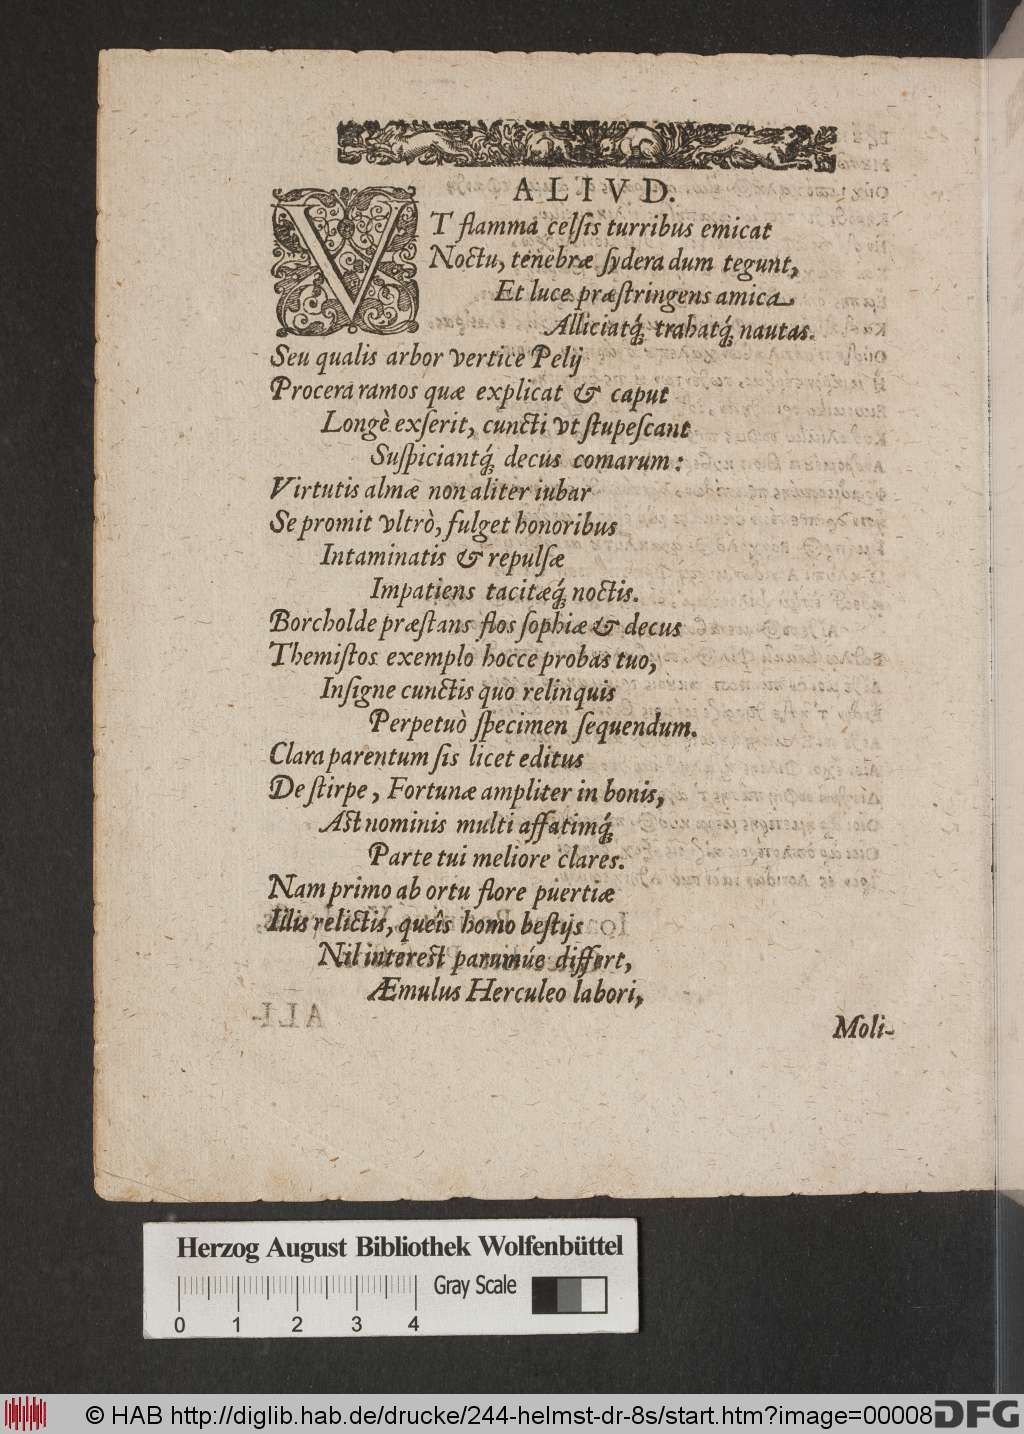 ALIVD.
VT flamma celsis turribus emicat
Noctu, tenebræ sydera dum tegunt,
Et luce præstringens amica
Alliciatq́; trahatq́; nautas.
Seu qualis arbor vertice Pelij
Procera ramos quæ explicat & caput
Longè exserit, cuncti vt stupescant
Suspiciantq́; decus comarum:
Virtutis almæ non aliter iubar
Se promit vltrò, fulget honoribus
Intaminatis & repulsæ
Impatiens tacitæq́; noctis.
Borcholde præstans flos sophiæ & decus
Themistos exemplo hocce probas tuo,
Insigne cunctis quo relinquis
Perpetuò specimen sequendum.
Clara parentum sis licet editus
De stirpe, Fortunæ ampliter in bonis,
Ast nominis multi affatimq́;
Parte tui meliore clares.
Nam primo ab ortu flore puertiæ
Illis relictis, queîs homo bestijs
Nil interest parumúe differt,
Æmulus Herculeo labori,
Moli-
Herzog August Bibliothek Wolfenbüttel
Gray Scale
0 1 2 3 4
© HAB http://diglib.hab.de/drucke/244-helmst-dr-8s/start.htm?image=00008
DFG